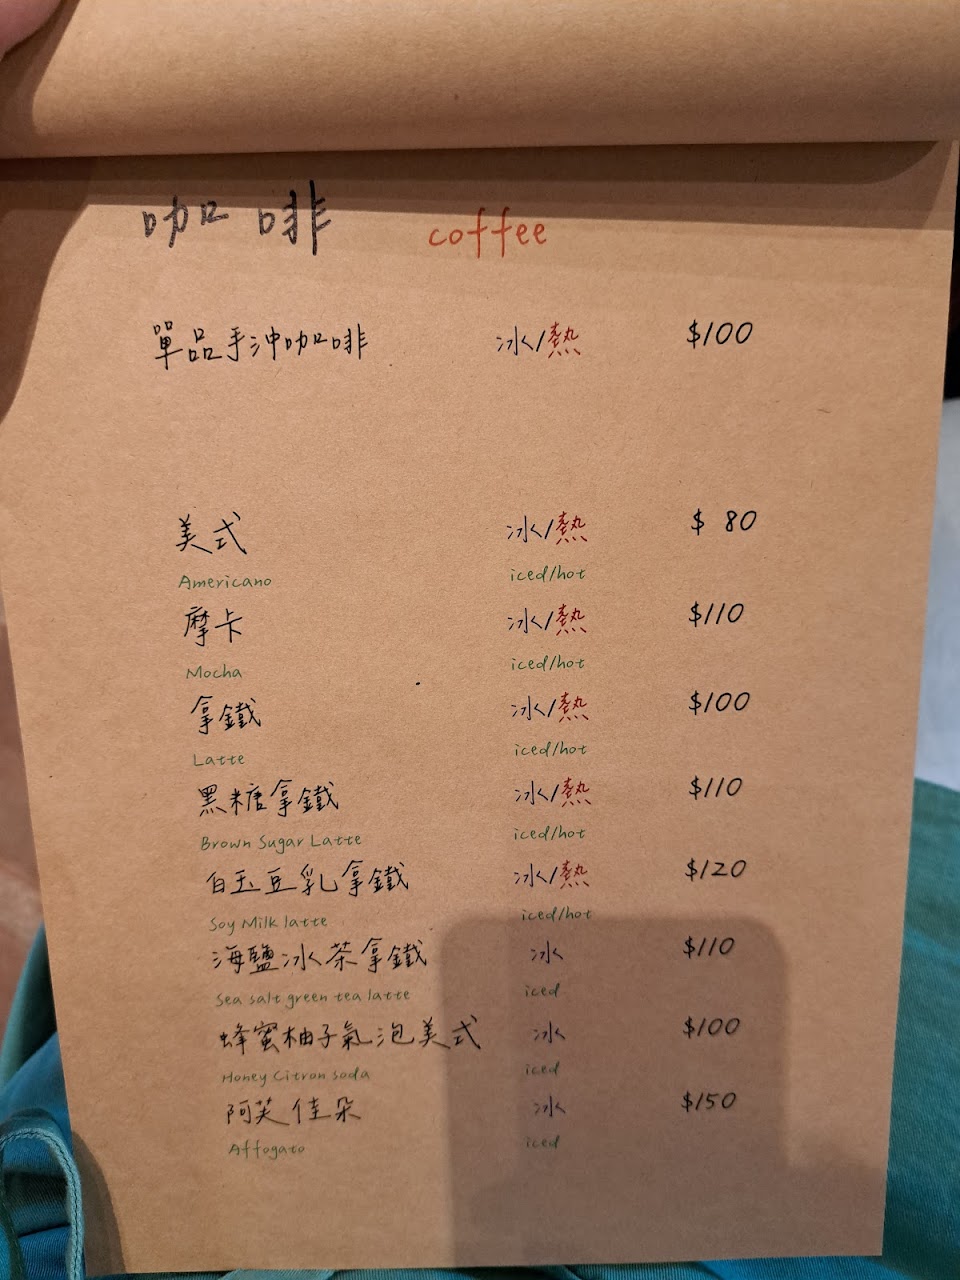 咖啡 coffee
單品手沖咖啡 冰/熱 $100
美式 冰/熱 $ 80
Americano iced/hot
摩卡 冰/熱 $110
Mocha iced/hot
拿鐵 冰/熱 $100
Latte iced/hot
黑糖拿鐵 冰/熱 $110
Brown Sugar Latte iced/hot
白玉豆乳拿鐵 冰/熱 $120
Soy Milk latte iced/hot
海鹽冰茶拿鐵 冰 $110
Sea salt green tea latte iced
蜂蜜柚子氣泡美式 冰 $100
Honey Citron soda iced
阿芙佳朵 冰 $150
Affogato iced